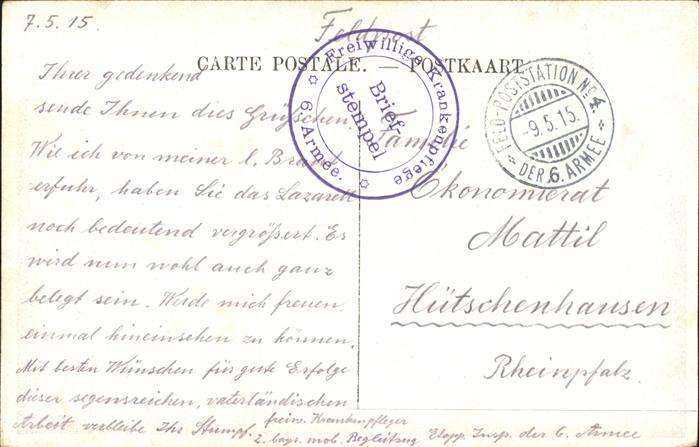 7.5.15.
Feldpost
CARTE POSTALE. — POSTKARTE
Freiwillige Krankenpflege
6. Armee.
Brief-
stempel
FELD-POSTSTATION No 4.
-9.5.15.
DER 6. ARMEE
Ihrer gedenkend
sende Ihnen dies Grüßchen.
Wie ich von meiner l. Braut
erfuhr, haben Sie das Lazarett
noch bedeutend vergrößert. Es
wird nun wohl auch ganz
belegt sein. Werde mich freuen
einmal hineinsehen zu können.
Mit besten Wünschen für gute Erfolge
dieser segensreichen, vaterländischen
Arbeit verbleibe Ihr Stumpf.
freiw. Krankenpfleger
2. bayr. mob. Begleitzug Etapp. Insp. der 6. Armee
Familie
Ökonomierat
Mattil
Hütschenhausen
Rheinpfalz.